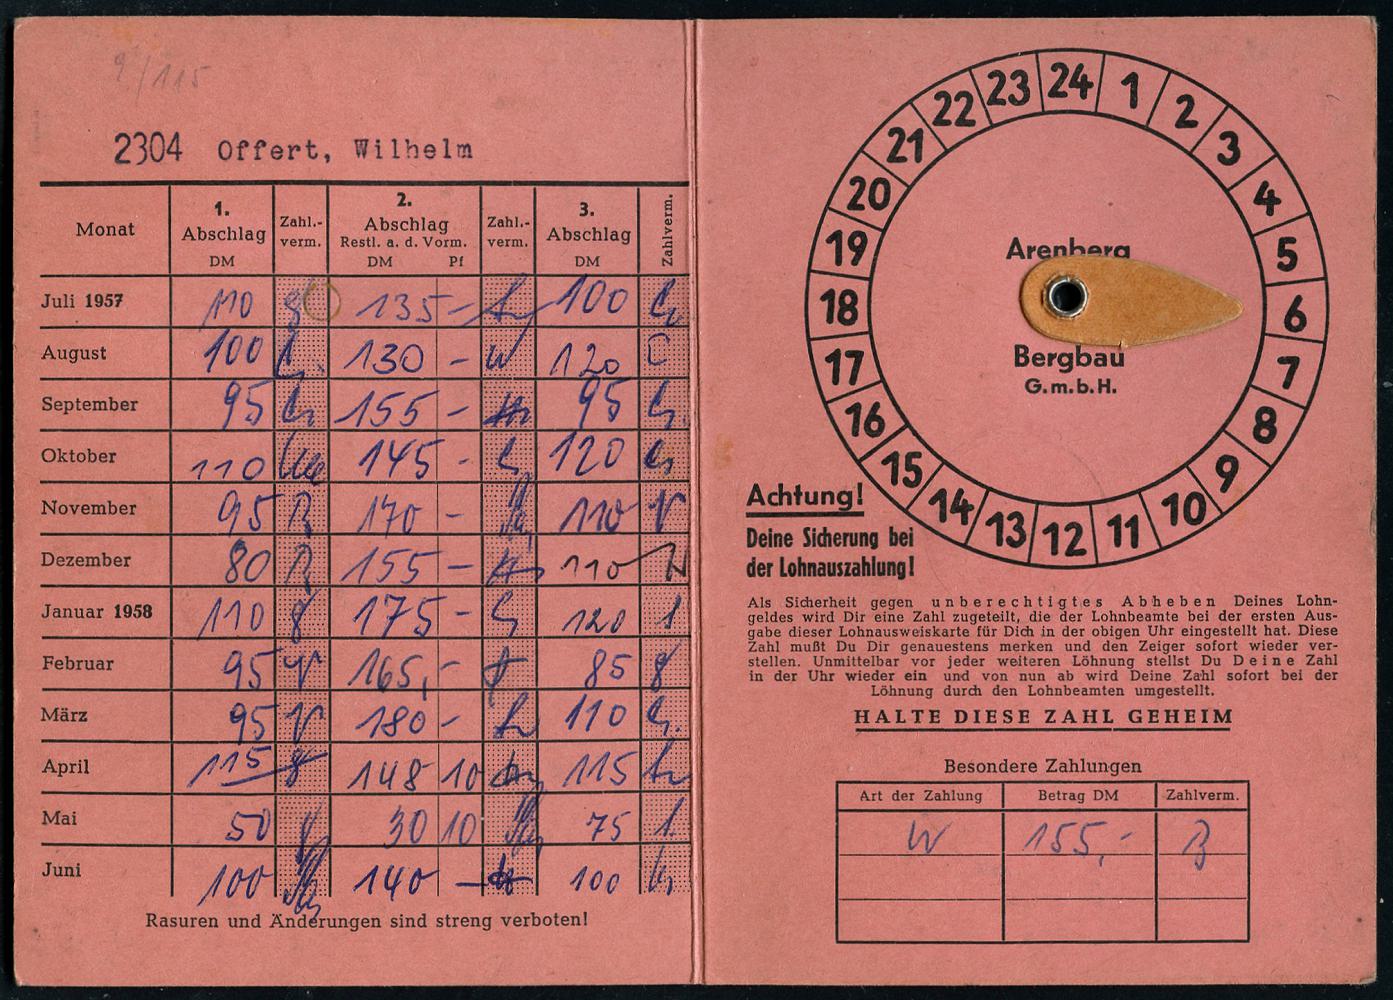 9/115
2304 Offert, Wilhelm
Monat 1. Abschlag DM Zahl.-verm. 2. Abschlag Restl. a. d. Vorm. DM Pf Zahl.-verm. 3. Abschlag DM Zahlverm.
Juli 1957 110 135 - 100
August 100 130 - W 120 C
September 95 155 - 95
Oktober 110 145 - 120
November 95 170 - 110
Dezember 80 155 - 110
Januar 1958 110 175 - 120
Februar 95 165,- 85
März 95 180 - 110
April 115 148 10 115
Mai 50 30 10 75
Juni 100 140 - 100
Rasuren und Änderungen sind streng verboten!
24 1 2 3 4 5 6 7 8 9 10 11 12 13 14 15 16 17 18 19 20 21 22 23
Arenberg
Bergbau
G.m.b.H.
Achtung!
Deine Sicherung bei
der Lohnauszahlung!
Als Sicherheit gegen unberechtigtes Abheben Deines Lohn-
geldes wird Dir eine Zahl zugeteilt, die der Lohnbeamte bei der ersten Aus-
gabe dieser Lohnausweiskarte für Dich in der obigen Uhr eingestellt hat. Diese
Zahl mußt Du Dir genauestens merken und den Zeiger sofort wieder ver-
stellen. Unmittelbar vor jeder weiteren Löhnung stellst Du Deine Zahl
in der Uhr wieder ein und von nun ab wird Deine Zahl sofort bei der
Löhnung durch den Lohnbeamten umgestellt.
HALTE DIESE ZAHL GEHEIM
Besondere Zahlungen
Art der Zahlung Betrag DM Zahlverm.
W 155,- B